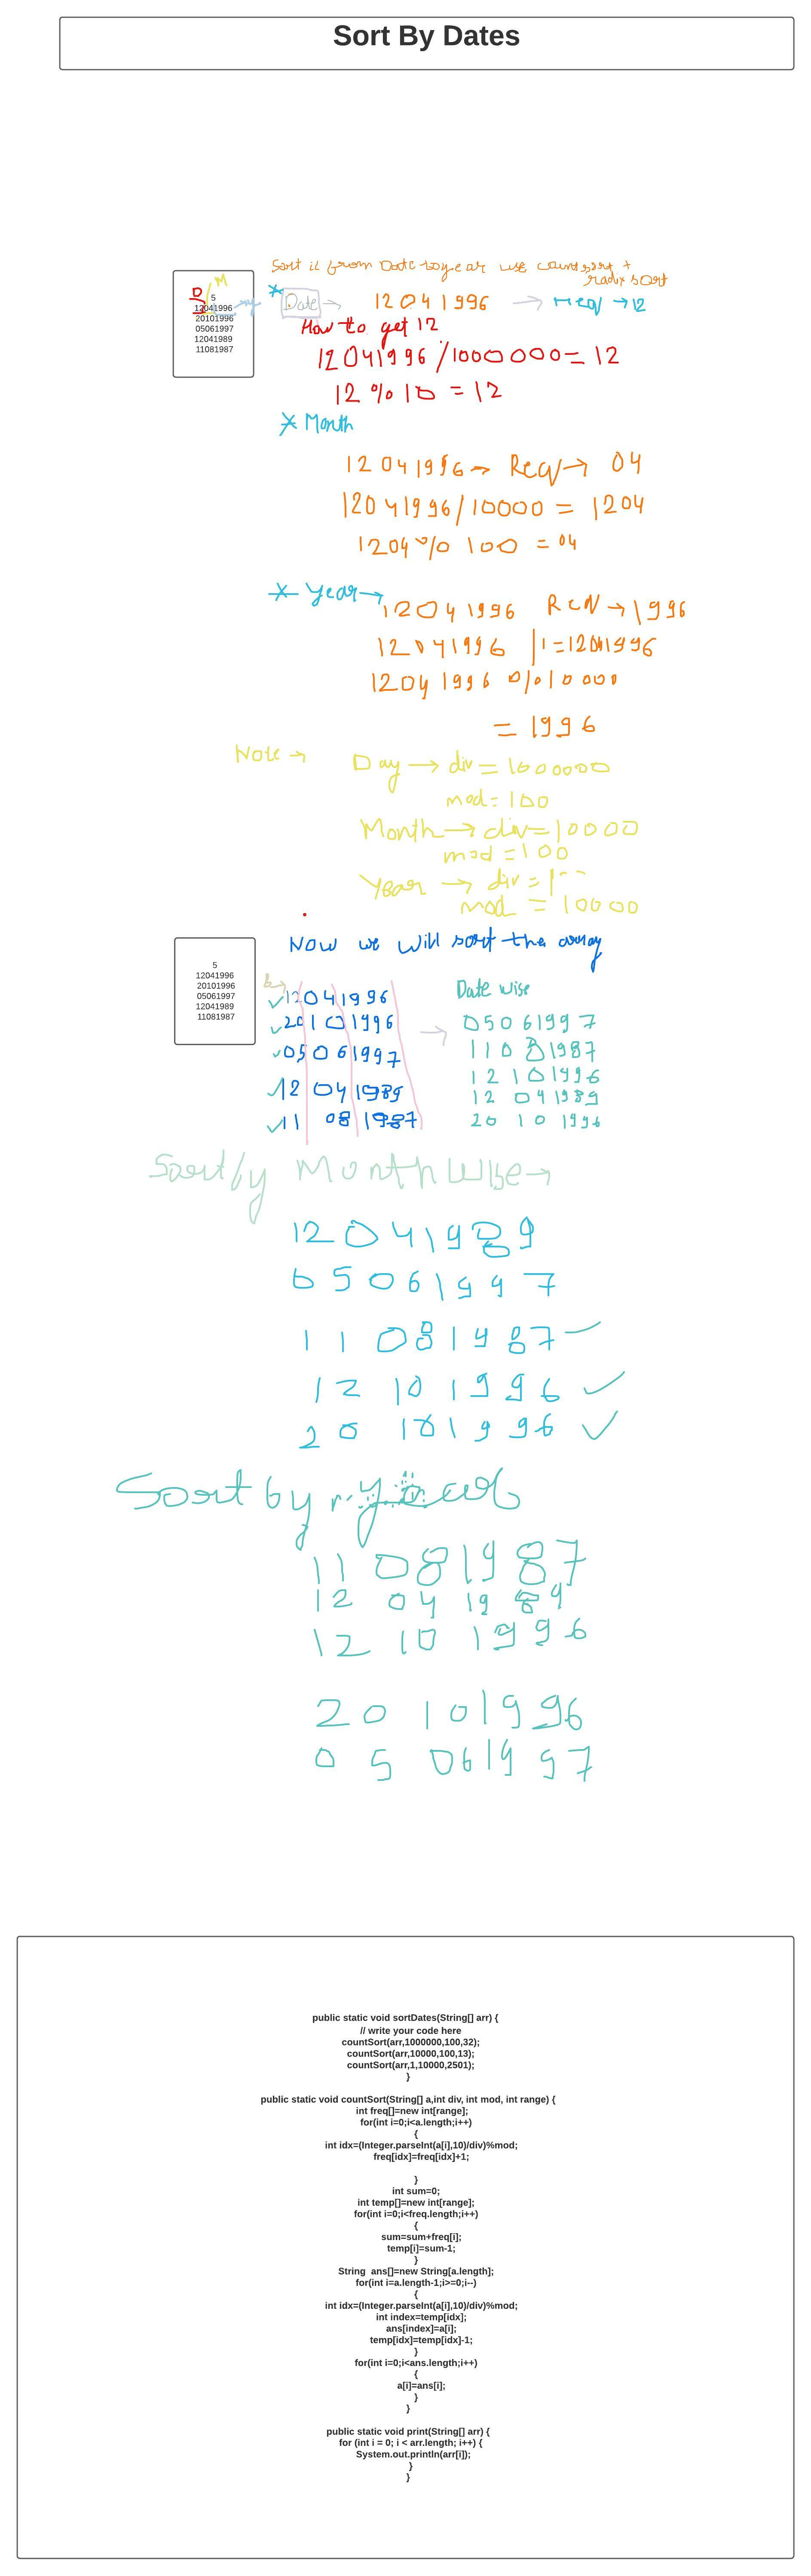 Sort By Dates
Sort it from Date to year use count sort +
radix sort
D M
5
12041996
20101996
05061997
12041989
11081987
* Date → 12041996 → Req → 12
How to get 12
12041996/1000000=12
12 % 10 = 12
* Month
12041996 → Req → 04
12041996/10000 = 1204
1204 % 100 = 04
* Year → 12041996 Req → 1996
12041996 /1=12041996
12041996 % 10000
= 1996
Note → Day → div = 1000000
mod = 100
Month → div = 10000
mod = 100
Year → div = 1
mod = 10000
Now we will sort the array
5
12041996
20101996
05061997
12041989
11081987
12041996
20101996
05061997
12041989
11081987
→
Date wise
05061997
11081987
12101996
12041989
20101996
Sort by Month Wise →
12041989
05061997
11081987
12101996
20101996
Sort by year
11081987
12041989
12101996
20101996
05061997
public static void sortDates(String[] arr) {
// write your code here
countSort(arr,1000000,100,32);
countSort(arr,10000,100,13);
countSort(arr,1,10000,2501);
}
public static void countSort(String[] a,int div, int mod, int range) {
int freq[]=new int[range];
for(int i=0;i<a.length;i++)
{
int idx=(Integer.parseInt(a[i],10)/div)%mod;
freq[idx]=freq[idx]+1;
}
int sum=0;
int temp[]=new int[range];
for(int i=0;i<freq.length;i++)
{
sum=sum+freq[i];
temp[i]=sum-1;
}
String ans[]=new String[a.length];
for(int i=a.length-1;i>=0;i--)
{
int idx=(Integer.parseInt(a[i],10)/div)%mod;
int index=temp[idx];
ans[index]=a[i];
temp[idx]=temp[idx]-1;
}
for(int i=0;i<ans.length;i++)
{
a[i]=ans[i];
}
}
public static void print(String[] arr) {
for (int i = 0; i < arr.length; i++) {
System.out.println(arr[i]);
}
}